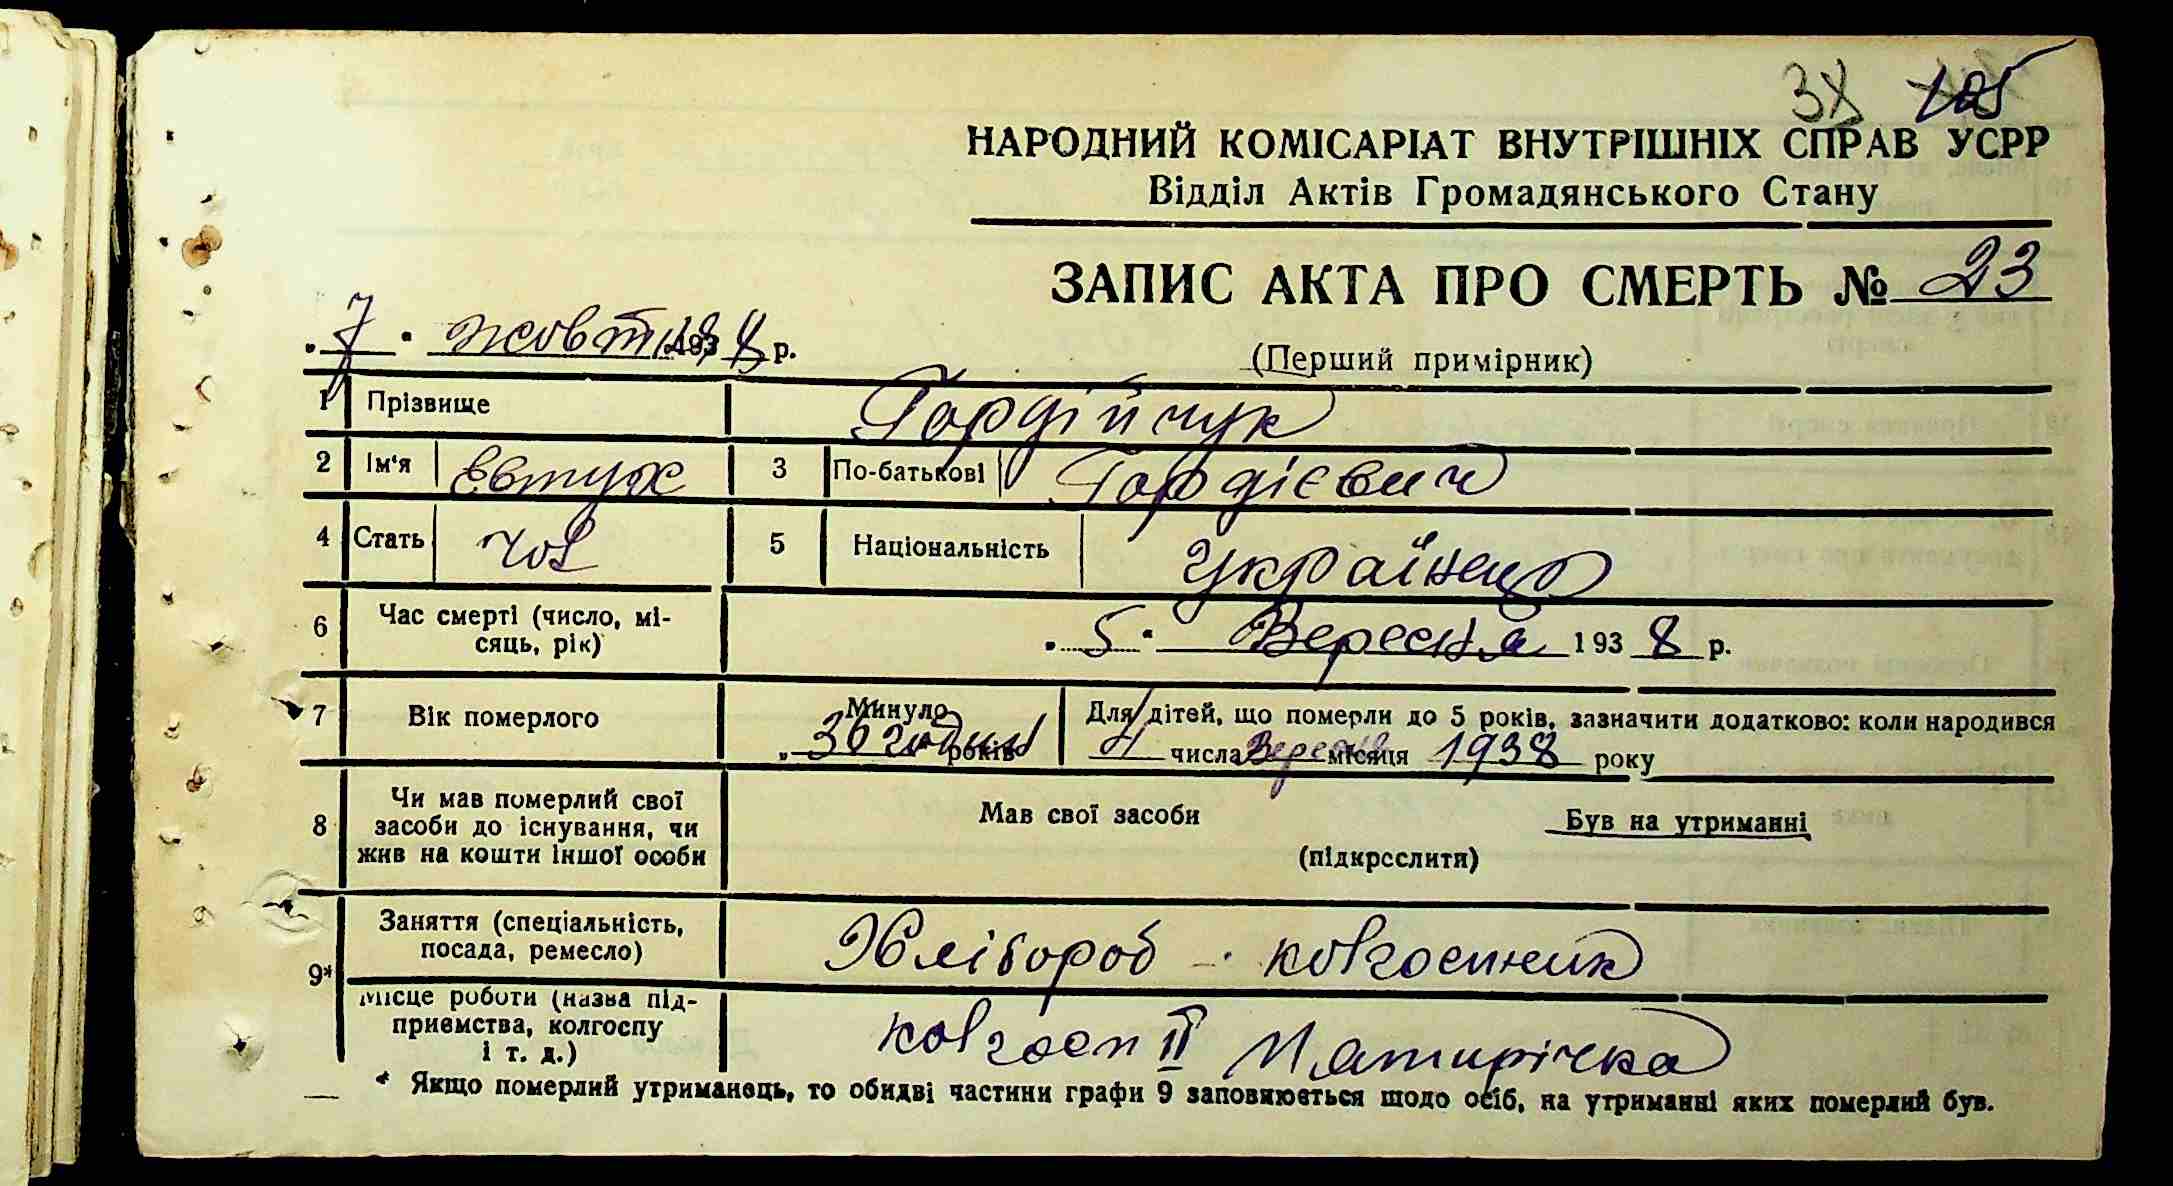 125
НАРОДНИЙ КОМІСАРІАТ ВНУТРІШНІХ СПРАВ УСРР
Відділ Актів Громадянського Стану
ЗАПИС АКТА ПРО СМЕРТЬ № 23
„7" жовтня 1938 р.
(Перший примірник)
1 Прізвище Гордійчук
2 Ім'я Євтух 3 По-батькові Гордієвич
4 Стать чол 5 Національність Українець
6 Час смерті (число, мі-
сяць, рік) „5" Вересня 1938 р.
7 Вік померлого Минуло Для дітей, що померли до 5 років, зазначити додатково: коли народився
„36 годин років 4 числа Вересня місяця 1938 року
8 Чи мав померлий свої
засоби до існування, чи
жив на кошти іншої особи
Мав свої засоби Був на утриманні
(підкреслити)
9* Заняття (спеціальність,
посада, ремесло) Хлібороб - колгоспник
Місце роботи (назва під-
приємства, колгоспу
і т. д.) колгосп ІІ П'ятирічка
* Якщо померлий утриманець, то обидві частини графи 9 заповнюється щодо осіб, на утриманні яких померлий був.